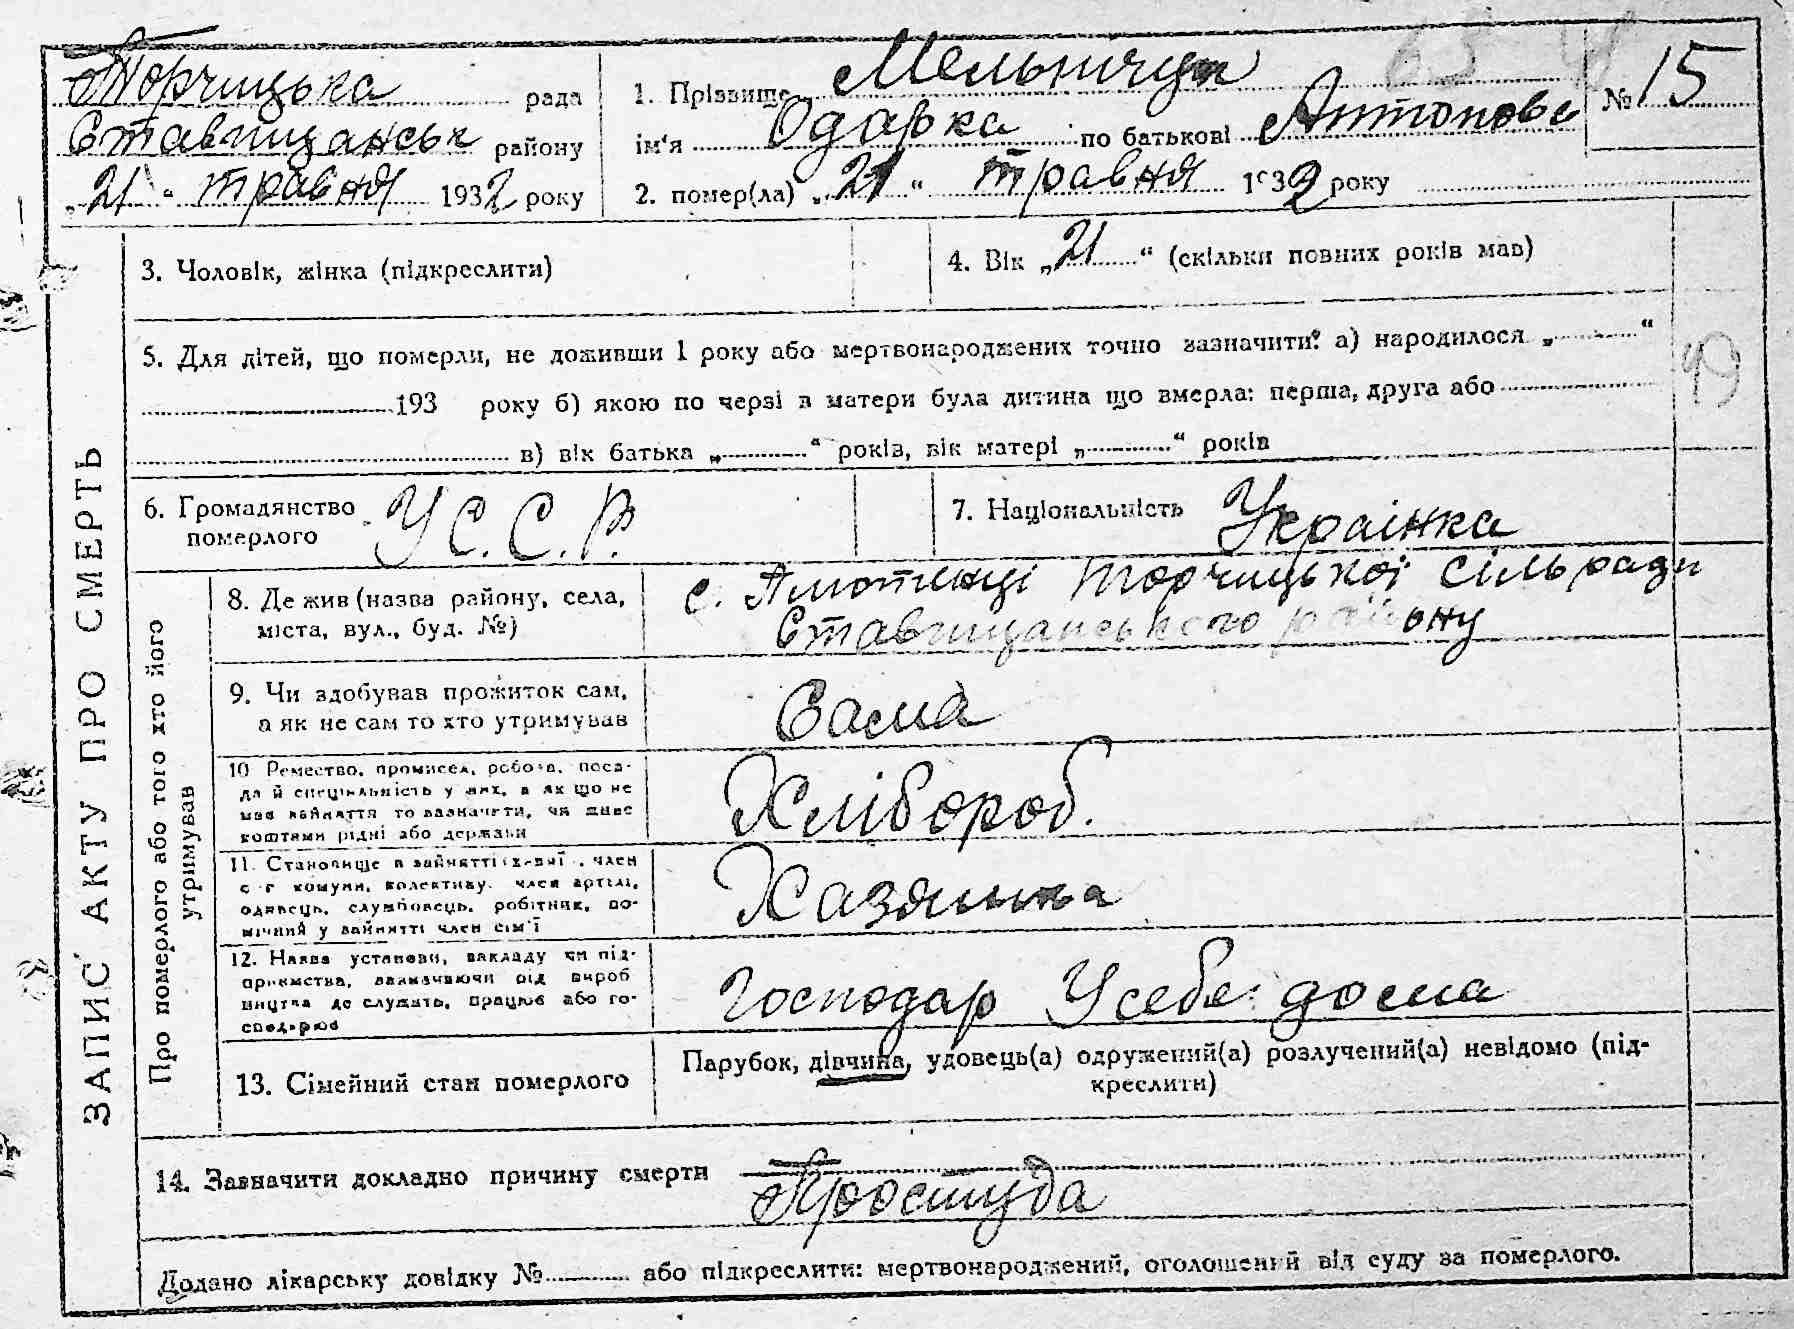 Торчицька рада
Ставищанськ району
„21“ травня 1932 року
1. Прізвище Мельничук
ім'я Одарка по батькові Антонове
№ 15
2. помер(ла) „21“ травня 1932 року
ЗАПИС АКТУ ПРО СМЕРТЬ
3. Чоловік, жінка (підкреслити)
4. Вік „21“ (скільки повних років мав)
5. Для дітей, що померли, не доживши 1 року або мертвонароджених точно зазначити: а) народилося „ “
193 року б) якою по черзі в матери була дитина що вмерла: перша, друга або
в) вік батька „ “ років, вік матері „ “ років
19
6. Громадянство
померлого
У С. С. Р.
7. Національність Українка
Про померлого або того хто його
утримував
8. Де жив (назва району, села,
міста, вул., буд. №)
с. Торчицької сільради
Ставищанського району
9. Чи здобував прожиток сам,
а як не сам то хто утримував
Сама
10 Ремество, промисел, робота, поса-
да й спеціяльність у них, а як що не
мав зайняття то зазначити, чи живе
коштами рідні або держави
Хлібороб.
11. Становище в зайнятті: член
с г комуни, колективу, член артілі,
одинець, службовець, робітник, по-
мічний у зайнятті член сім'ї
Хазяйка
12. Назва установи, закладу чи під-
приємства, зазначаючи від вироб
ництва де служить, працює або го-
сподарює
Господар У себе дома
13. Сімейний стан померлого
Парубок, дівчина, удовець(а) одружений(а) розлучений(а) невідомо (під-
креслити)
14. Зазначити докладно причину смерти Простуда
Додано лікарську довідку № або підкреслити: мертвонароджений, оголошений від суду за померлого.